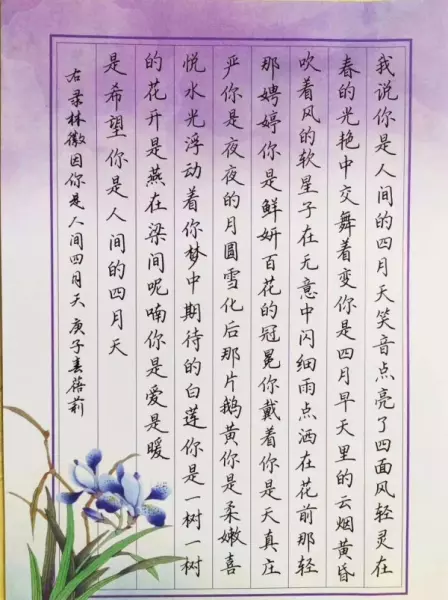 我说你是人间的四月天笑音点亮了四面风轻灵在
春的光艳中交舞着变你是四月早天里的云烟黄昏
吹着风的软星子在无意中闪细雨点洒在花前那轻
那娉婷你是鲜妍百花的冠冕你戴着你是天真庄
严你是夜夜的月圆雪化后那片鹅黄你是柔嫩喜
悦水光浮动着你梦中期待的白莲你是一树一树
的花开是燕在梁间呢喃你是爱是暖
是希望你是人间的四月天
右录林徽因你是人间四月天 庚子春蓓莉